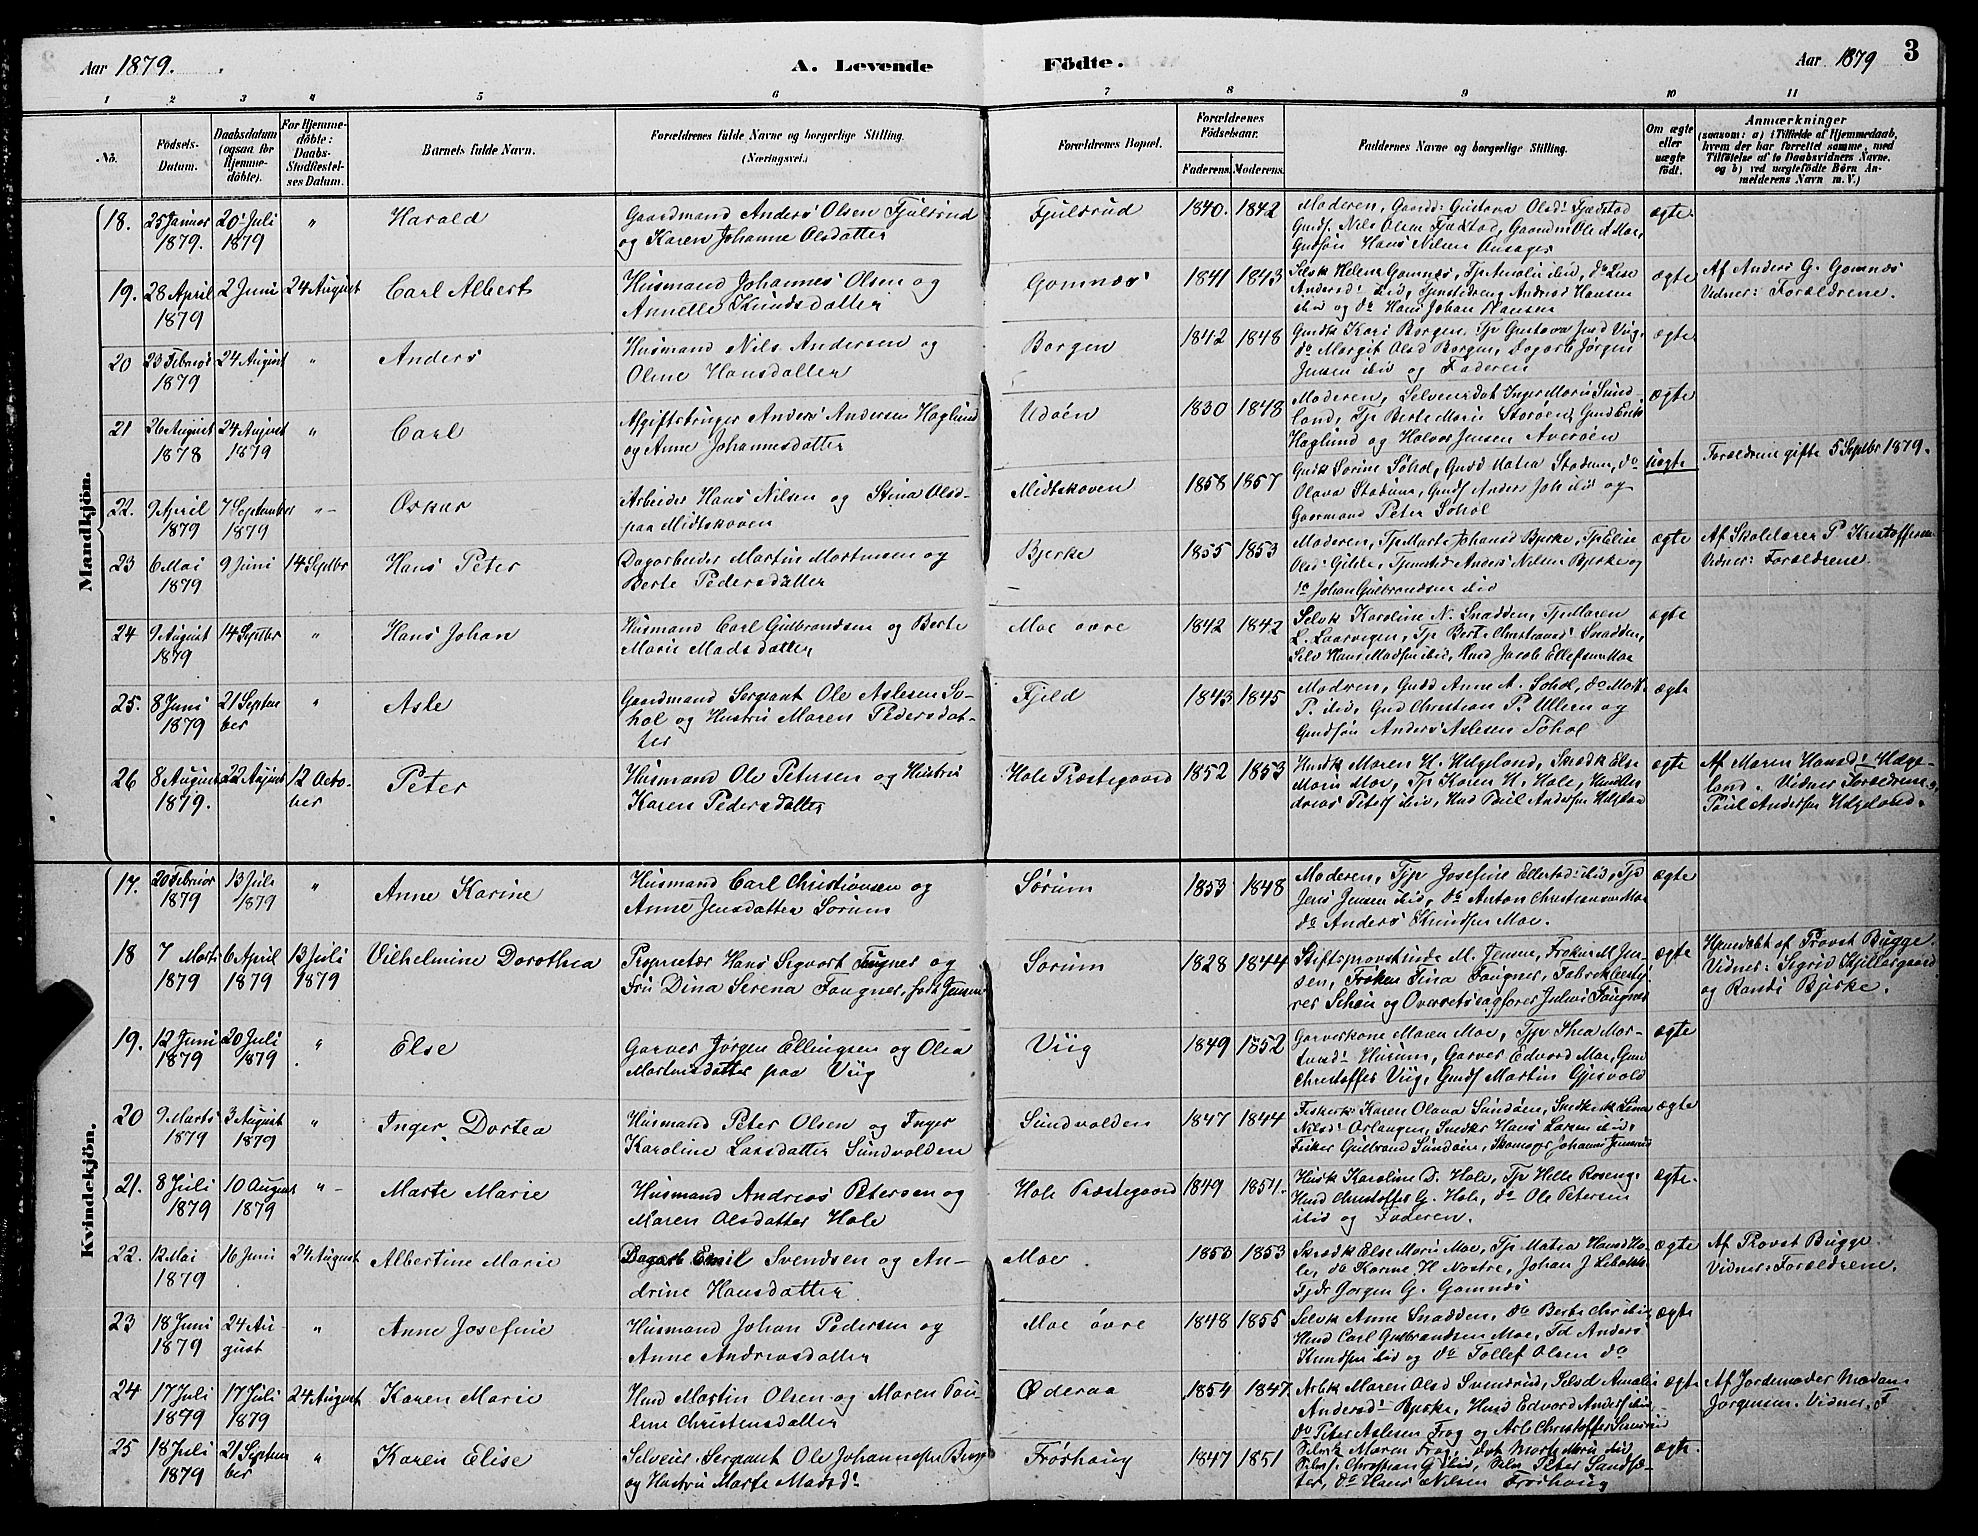 Aar 1879.
A. Levende Födte.
Aar 1879
3
1 2 3 4 5 6 7 8 9 10 11
No.
Födsels-Datum.
Daabsdatum (ogsaa for Hjemme-döbte).
For Hjemme-döbte: Daabs-Stadfæstel-ses Datum.
Barnets fulde Navn.
Forældrenes fulde Navne og borgerlige Stilling.
(Næringsvei.)
Forældrenes Bopæl.
Forældrenes Födselsaar.
Faderens. Moderens.
Faddernes Navne og borgerlige Stilling.
Om ægte eller uægte födt.
Anmærkninger
(saasom: a) i Tilfælde af Hjemmedaab, hvem der har forrettet samme, med Tilföielse af to Daabsvidners Navne. og b) ved uægtefödte Börn Anmelderens Navn m. V.)
Mandkjön.
18. 25 Januar 1879. 20 Juli 1879 " Harald
Gaardmand Anders Olsen Fjulsrud
og Karen Johanne Olsdatter
Fjulsrud 1840. 1842
Moderen, Gaard: Gustava Olsd: Fjædstad
Gmds. Nils Olsen Fjædstad, Gaardm Ole A Moe,
Gmdsön Hans Nilsen
ægte.
19. 28 April 1879 2 Juni 24 August Carl Albert
Husmand Johannes Olsen og
Annette Knudsdatter
Gomnæs 1841 1843
Selvk Helene Gomnæs, Tp Amalie ibid, do Lise
Andersd: ibid, Tjenestedreng Andreas Hansen
ibid og do Hans Johan Hansen
ægte
Af Anders G. Gomnæs
Vidner: Forældrene.
20 23 Februar 1879 24 August " Anders
Husmand Nils Andersen og
Oline Hansdatter
Borgen 1842 1848
Gmdk Kari Borgen, Tp Gustava Jensd Viig,
do Margit Olsd Borgen, Dagarb Jörgen
Jensen ibid og Faderen
ægte
21 26 August 1878 24 August 1879 " Carl
Afgiftsbruger Anders Andersen Haglund
og Anne Johannesdatter
Udöen 1830 1848
Moderen, Selveierdat Inger Marie Sund-
land, Tp Berte Marie Storöen, Gmd Erik
Haglund og Halvor Jensen Averöen
ægte
22. 9 April 1879 7 September 1879 " Oskar
Arbeider Hans Nilsen og Stina Olsd-
paa Midtskoven
Midtskoven 1858 1857
Gmdk Sorine Söhol, Gmdd Matea Stadum, do
Olava Stadum, Gmds Anders Joh ibid og
Gaarmand Peter Söhol
uægte
Forældrene gifte 5 Septbr 1879.
23 6 Mai 1879 9 Juni 14 Septbr Hans Peter
Dagarbeider Martin Martinsen og
Berte Pedersdatter
Bjerke 1855 1853
Moderen, Tp Marte Johansd Bjerke, Tp Elise
Olsd: Gilde, Tjenested Anders Nilsen Bjerke og
do Johan Gulbrandsen ibid
ægte
Af Skolelærer P. Kristoffersen
Vidner: Forældrene.
24 9 August 1879 14 Septbr " Hans Johan
Husmand Carl Gulbrandsen og Berte
Marie Madsdatter
Moe övre 1842 1842
Selvk Karoline N. Snadden, Tp Maren
L. Laarvigen, Tp Berte Christiansd: Snadden,
Selv Hans Madsen ibid, Hmd Jacob Ellefsen Moe
ægte
25. 8 Juni 1879 21 September " Asle
Gaardmand Sergeant Ole Aslesen Sö-
hol og Hustru Maren Pedersdat-
ter
Fjeld 1843 1845
Moderen, Gmdd Anne A. Söhol, do Mart
P. ibid, Gmd Christian P. Ullern og
Gmdsön Anders Aslesen Söhol
ægte
26 8 August 1879. 22 August 12 October Peter
Husmand Ole Petersen og Hustru
Karen Pedersdatter
Hole Præstegaard 1852 1853
Husk Maren H. Helgeland, Skrædk Else
Marie Moe, Tp Karen H. Hole, Hmd An-
dreas Peters ibid, Hmd Paul Andersen Helgeland
ægte
Af Maren Hansd: Helge-
land. Vidner Forældrene og
Paul Andersen Helgeland.
Kvindekjön.
17. 20 Februar 1879 13 Juli 1879 " Anne Karine
Husmand Carl Christiansen og
Anne Jensdatter Sörum
Sörum 1853 1848
Moderen, Tp Josefine Ellertsd: ibid, Tjd
Jens Jensen ibid, do Anton Christiansen Moe
do Anders Knudsen Moe.
ægte
18 7 Marts 1879 6 April 1879 13 Juli 1879 Vilhelmine Dorothea
Proprietær Hans Sigvart Faugner og
Fru Dina Serena Faugner, född Jensen
Sörum 1828 1844
Stiftsprovstinde M. Jensen, Fröken M Jen-
sen, Fröken Tina Faugner, Fabrikbesty-
rer Schöu og Overretssagförer Julius Faugner
ægte
Hjemdöbt af Provst Bugge.
Vidner: Sigrid Kjellergaard
og Randi Bjerke.
19. 12 Juni 1879 20 Juli 1879 " Else
Garver Jörgen Ellingsen og Olea
Martinsdatter paa Viig
Viig 1849 1852
Garverkone Maren Moe, Tp Thea Mar-
tinsd: Hurum, Garver Edvard Moe, Gmd
Christoffer Viig, Gmds Martin Gjesvold
ægte
20 9 Marts 1879 3 August 1879 " Inger Dortea
Husmand Peter Olsen og Inger
Karoline Larsdatter Sundvolden
Sundvolden 1847 1844
Fiskerk: Karen Olava Sundöen, Snedkerk Lina
Nilsd: Orlangen, Snedker Hans Larsen ibid,
Fisker Gulbrand Sundöen, Skomager Johannes
ægte
21. 8 Juli 1879 10 August 1879 " Marte Marie
Husmand Andreas Petersen og
Maren Olsdatter Hole
Hole Præstegaard 1849 1854.
Husk Karoline D. Hole, Tp Helle Roseng,
Hmd Christoffer G. Hole, do Ole Petersen
ibid og Faderen.
ægte.
22. 12 Mai 1879 16 Juni 24 August Albertine Marie
Dagarb Emil Svendsen og An-
drine Hansdatter
Moe 1853 1853
Skrædk Else Marie Moe, Tp Matea Hansd Ho-
le, do Karine H Næstre, Johan J
Tjdr Jörgen G. Gomnæs
ægte
Af Provst Bugge.
Vidner: Forældrene.
23 18 Juni 1879 24 August " Anne Josefine
Husmand Johan Pedersen og
Anne Andreasdatter
Moe övre 1848 1855
Selvk Anne Snadden, do Berte Chr ibid,
Hmd Carl Gulbrandsen Moe, Td Anders
Knudsen ibid og do Tollef Olsen do
ægte
24 17 Juli 1879 17 Juli 1879 24 August Karen Marie
Hmd Martin Olsen og Maren Pau-
line Christensdatter
Öderaa 1854 1847.
Arbk Maren Olsd Svendsrud, Selsd Amalie
Andersd: Bjerke, Hmd Edvard Anders ibid,
do Peter Aslesen Frog og Arb Christoffer Svensrud
ægte
Af Jordemoder Madam
Jörgensen. Vidner: F
25 18 Juli 1879 21 September " Karen Elise
Selveier Sergeant Ole Johannesen
og Hustru Marte Madsd:
Frörhaug 1847 1851
Selvk Maren Frog, dat Mart Marie ibid,
Selvs. Christian G ibid, Selv Peter Sandsæ-
ter, do Hans Nilsen Frörhaug
ægte.